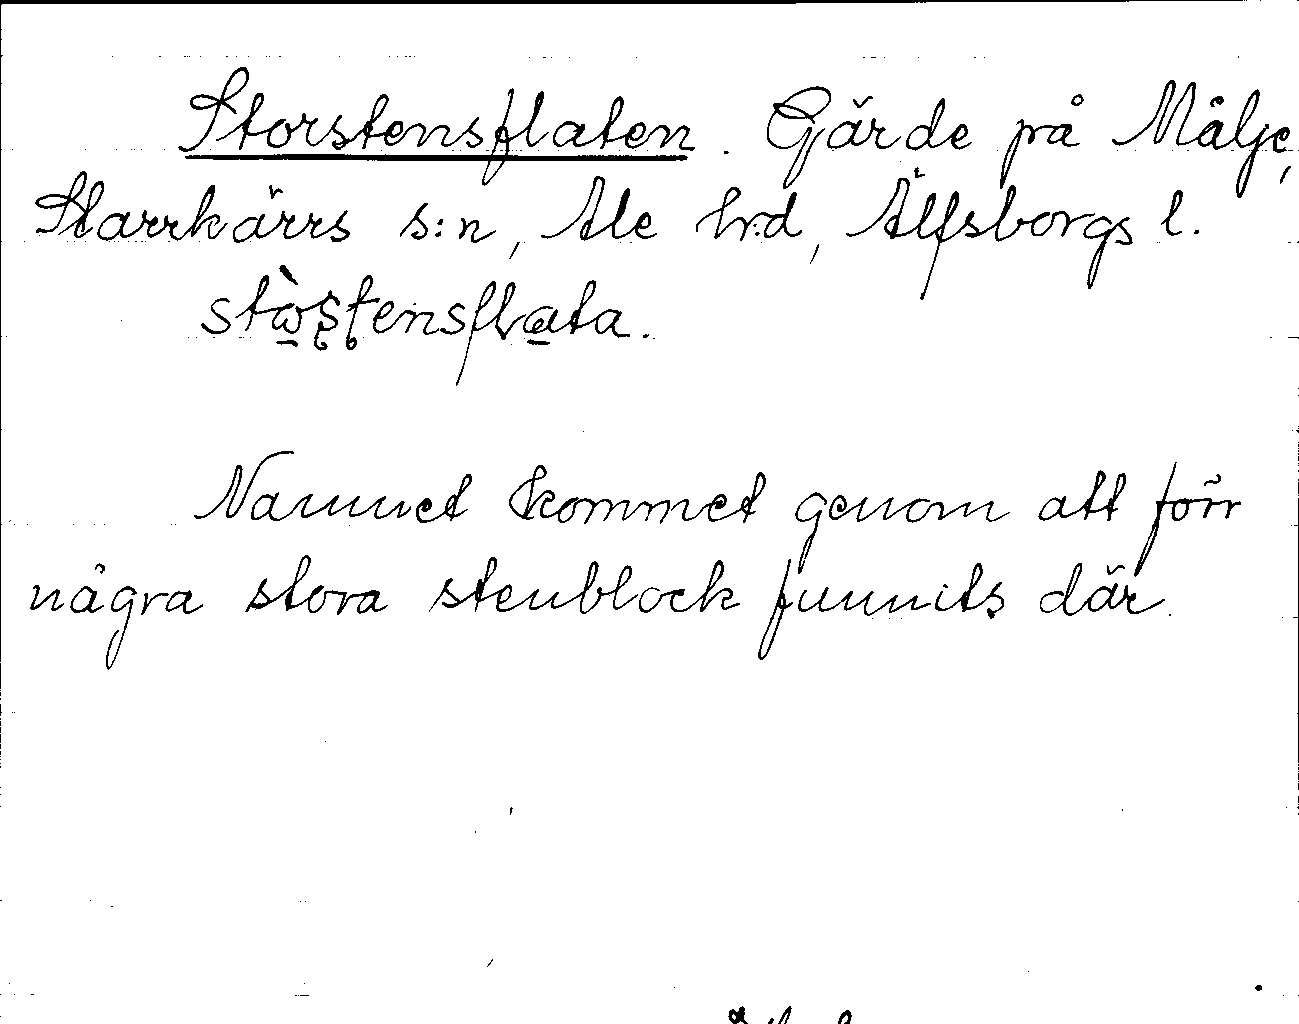 Storstensflaten. Gärde på Målje,
Starrkärrs s:n, Ale h:d, Älfsborgs l.
Namnet kommet genom att förr
några stora stenblock funnits där.